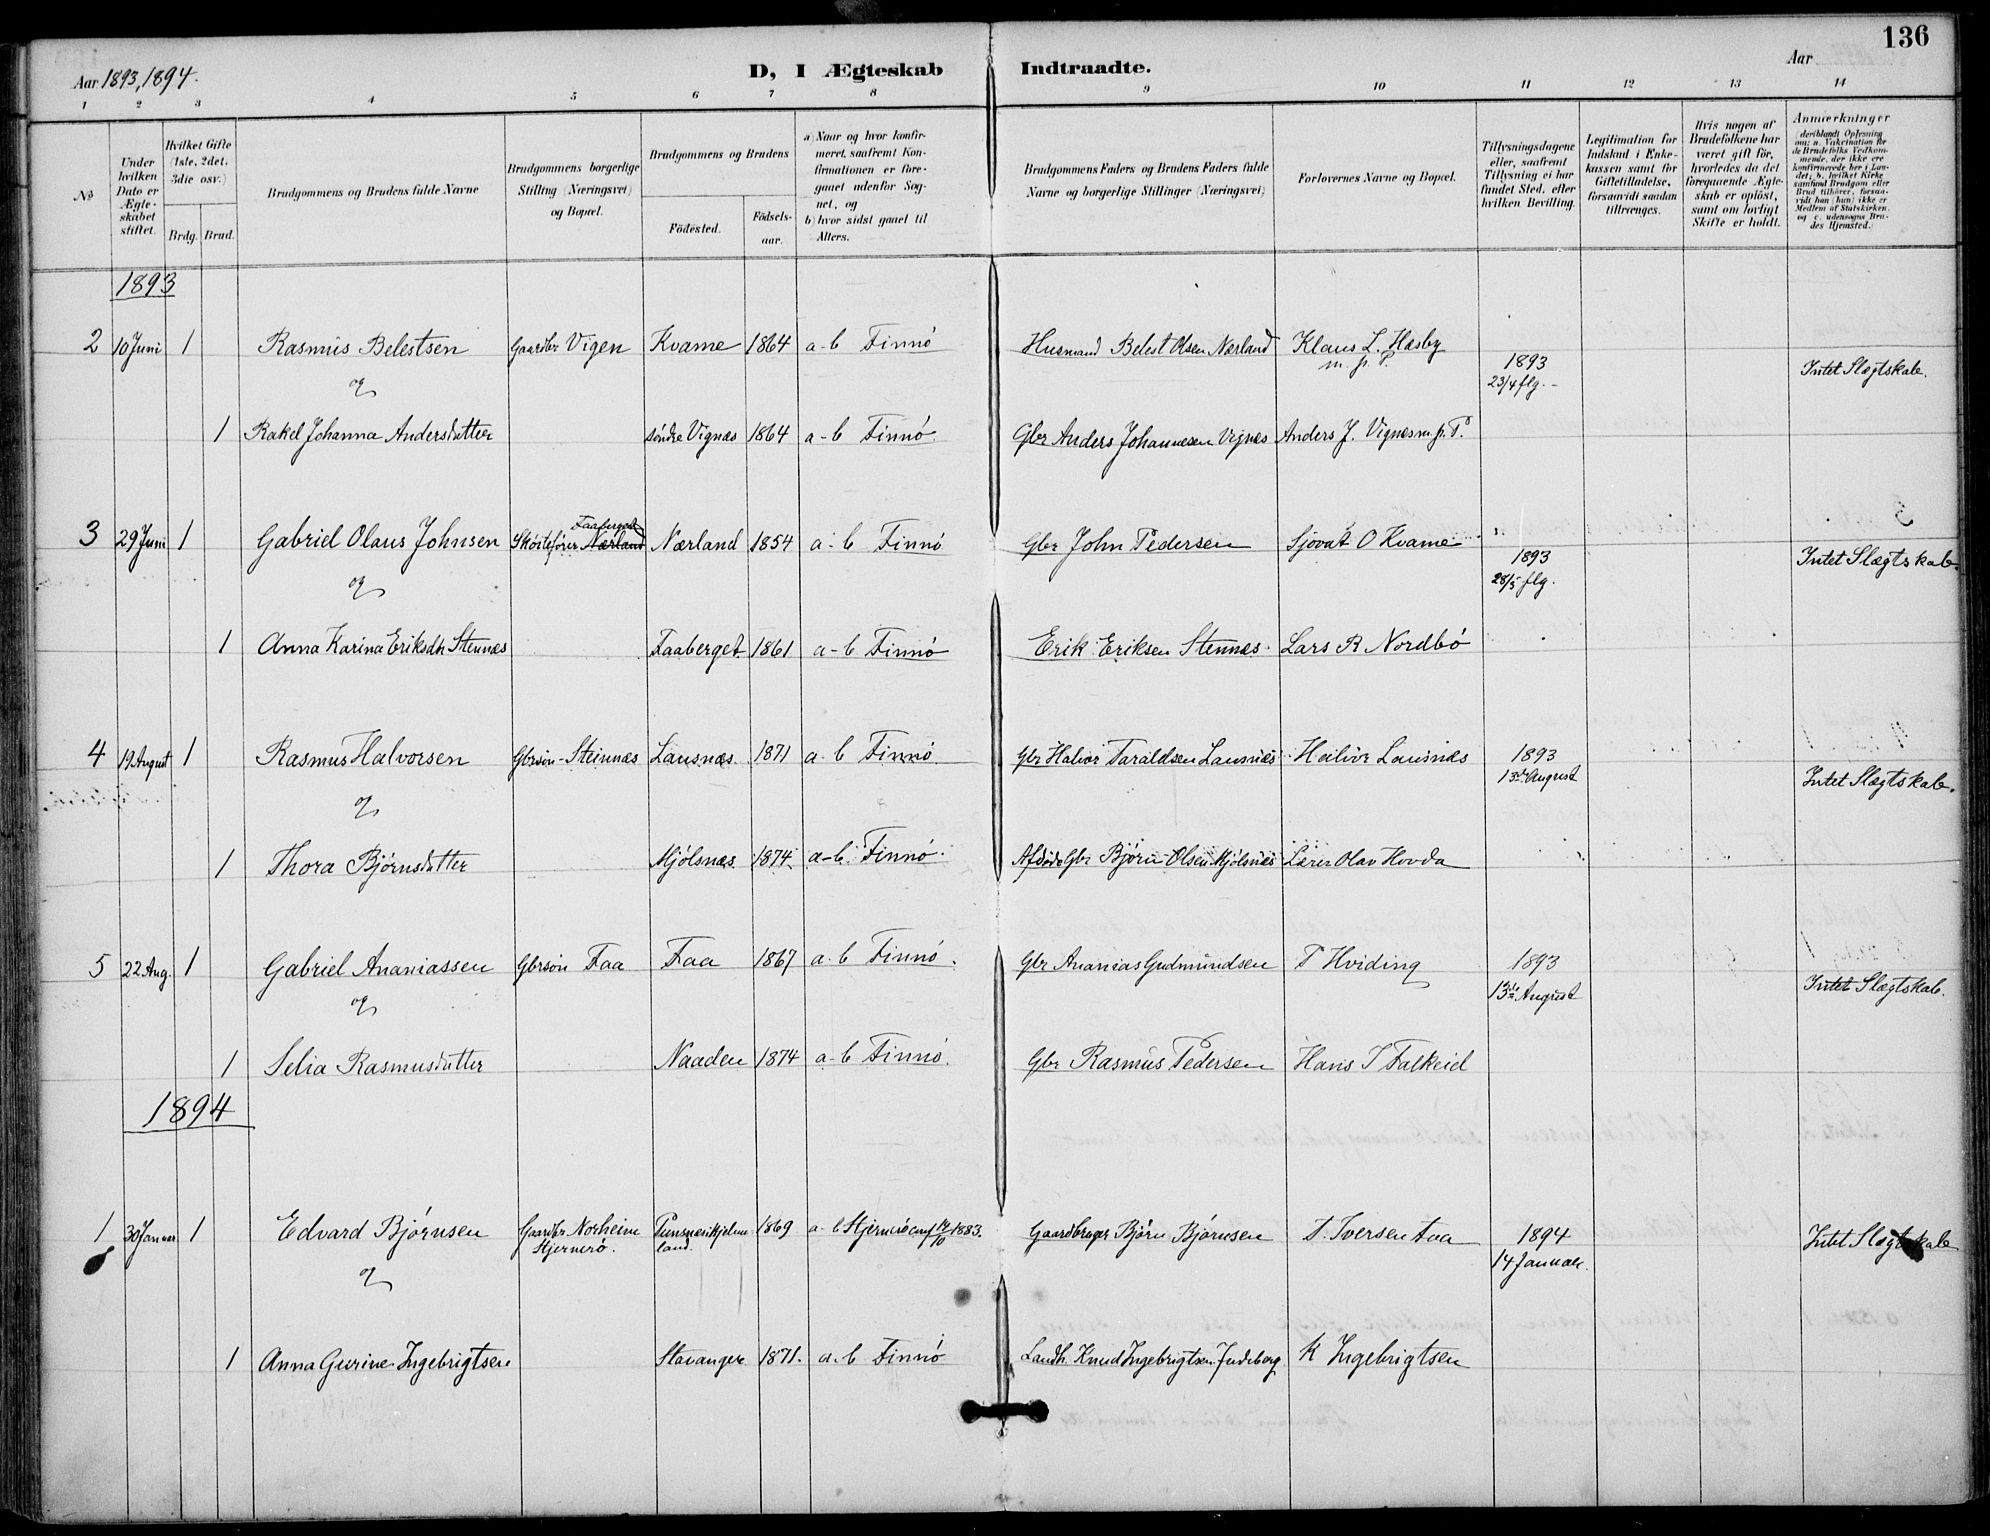 136
Aar 1893, 1894.
D, I Ægteskab Indtraadte.
Aar
1 2 3 4 5 6 7 8 9 10 11 12 13 14
No
Under hvilken Dato er Ægteskabet stiftet.
Hvilket Gifte (1ste, 2det, 3die osv.)
Brdg. Brud.
Brudgommens og Brudens fulde Navne
Brudgommens borgerlige Stilling (Næringsvei) og Bopæl.
Brudgommens og Brudens
Födested. Födsels-aar.
a) Naar og hvor konfirmeret, saafremt Konfirmationen er foregaaet udenfor Sognet, og
b) hvor sidst gaaet til Alters.
Brudgommens Faders og Brudens Faders fulde Navne og borgerlige Stillinger (Næringsvei)
Forlovernes Navne og Bopæl.
Tillysningsdagene eller, saafremt Tillysning ei har fundet Sted, efter hvilken Bevilling.
Legitimation for Indskud i Enkekassen samt for Giftetilladelse, forsaavidt saadan tiltrænges.
Hvis nogen af Brudefolkene har været gift før, hvorledes da det foregaaende Ægteskab er oplöst, samt om lovligt Skifte er holdt.
Anmærkninger
(deriblandt Oplysning om: a. Vakcination for de Brudefolks Vedkommende, der ikke ere konfirmerede her i Landet; b. hvilket Kirkesamfund Brudgom eller Brud tilhörer, forsaavidt han (hun) ikke er Medlem af Statskirken, og c. udensogns Brudes Hjemsted.)
1893
2 10 Juni 1 Rasmus Belestsen Gaardbr Vigen Kvame 1864 a-b Finnö Husmand Belest Olsen Nærland Klaus L. Hæsby
m. p. P.
1893
23/4 flg. -
Intet Slægtskab.
og
1 Rakel Johanna Andersdatter söndre Vignæs 1864 a-b Finnö. Gbr Anders Johannesen Vignæs Anders J. Vignæs m. p. P.
3 29 Juni 1 Gabriel Olaus Johnsen Skøiteförer Nærland Faaberget Nærland 1854 a-b Finnö Gbr John Pedersen Sjovat O Kvame
1893
28/5 flg.
Intet Slægtskab.
og
1 Anna Karina Eriksdtr Stennæs Faaberget 1861 a-b Finnö Erik Eriksen Stennæs. Lars R Nordbö
4 19 August 1 Rasmus Halvorsen Gbrsön Steinnæs Lausnæs 1871 a-b Finnö Gbr Halvor Taraldsen Lausnæs Halvor Lausnæs 1893
13de August
Intet Slægtskab.
og
1 Thora Bjørnsdatter Mjölsnæs 1874 a-b Finnö. Afdöde Gbr Bjørn Olsen Mjölsnæs Lærer Olav Hovda
5 22 Aug. 1 Gabriel Ananiassen Gbrsön Faa Faa 1867 a-b Finnö. Gbr Ananias Gudmundsen P Hviding 1893
13de August
Intet Slægtskab.
og
1 Selia Rasmusdatter Naaden 1874 a-b Finnö. Gbr Rasmus Pedersen Hans I Falkeid
1894
1 30 Januar 1 Edvard Bjørnsen Gaardbr Norheim
Stjernerö. 1869 a-b Stjernerö conf 14/10 1883. Gaardbruger Björn Björnsen T. Iversen Aaa 1894
14 Januar.
Intet Slægtskab
og
1 Anna Gurine Ingebrigtsen Stavanger 1871. a-b Finnö Landh. Knud Ingebrigtsen Judeberg K Ingebrigtsen